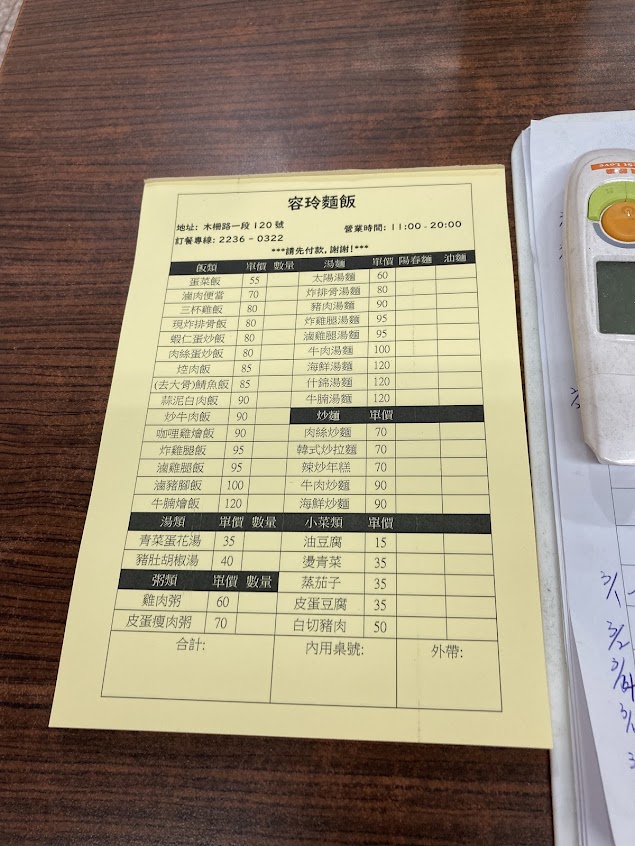 容玲麵飯
地址: 木柵路一段 120 號 營業時間: 11:00 - 20:00
訂餐專線: 2236 - 0322
***請先付款, 謝謝!***
飯類 單價 數量 湯麵 單價 陽春麵 油麵
蛋菜飯 55 太陽湯麵 60
滷肉便當 70 炸排骨湯麵 80
三杯雞飯 80 豬肉湯麵 90
現炸排骨飯 80 炸雞腿湯麵 95
蝦仁蛋炒飯 80 滷雞腿湯麵 95
肉絲蛋炒飯 80 牛肉湯麵 100
焢肉飯 85 海鮮湯麵 120
(去大骨)鯖魚飯 85 什錦湯麵 120
蒜泥白肉飯 90 牛腩湯麵 120
炒牛肉飯 90 炒麵 單價
咖哩雞燴飯 90 肉絲炒麵 70
炸雞腿飯 95 韓式炒拉麵 70
滷雞腿飯 95 辣炒年糕 70
滷豬腳飯 100 牛肉炒麵 90
牛腩燴飯 120 海鮮炒麵 90
湯類 單價 數量 小菜類 單價
青菜蛋花湯 35 油豆腐 15
豬肚胡椒湯 40 燙青菜 35
粥類 單價 數量 蒸茄子 35
雞肉粥 60 皮蛋豆腐 35
皮蛋瘦肉粥 70 白切豬肉 50
合計: 內用桌號: 外帶:
3/1
3/2